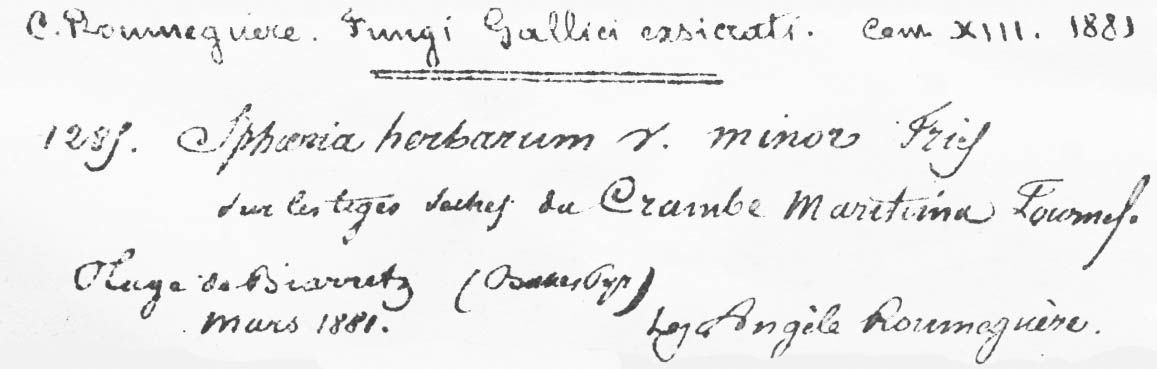 C. Roumeguère. Fungi Gallici exsiccati. Cent. XIII. 1881
1285. Sphæria herbarum v. minor Fries
sur les tiges sèches du Crambe Maritima Tournef.
Plage de Biarretz (Basses Pyr)
Mars 1881. Leg Angèle Roumeguère.